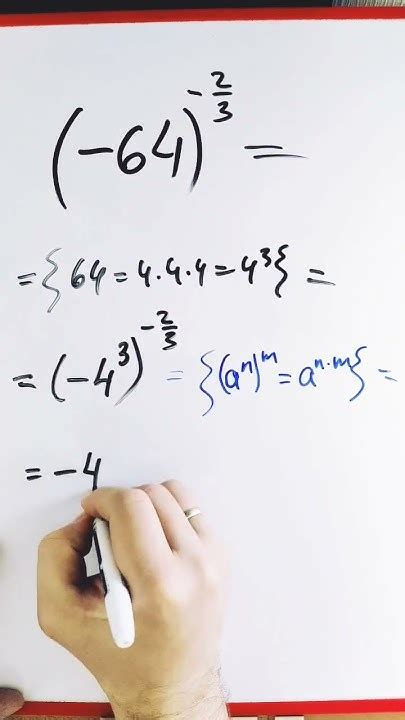 (-64)^{-\frac{2}{3}} =
= {64 = 4·4·4 = 4³} =
= (-4³)^{-\frac{2}{3}} = {(aⁿ)ᵐ = aⁿ·ᵐ} =
= -4